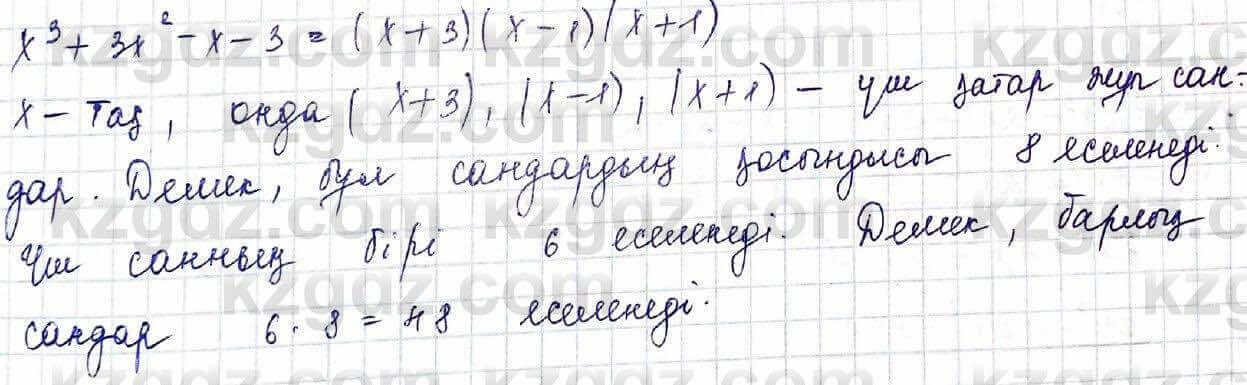 x³ + 3x² - x - 3 = (x + 3)(x - 1)(x + 1)
x - тақ, онда (x+3), (x-1), (x+1) - үш қатар жұп сан-
дар. Демек, бұл сандардың қосындысы 8 еселенеді.
Үш санның бірі 6 еселенеді. Демек, барлық
сандар 6 · 8 = 48 еселенеді.
kzgdz.com